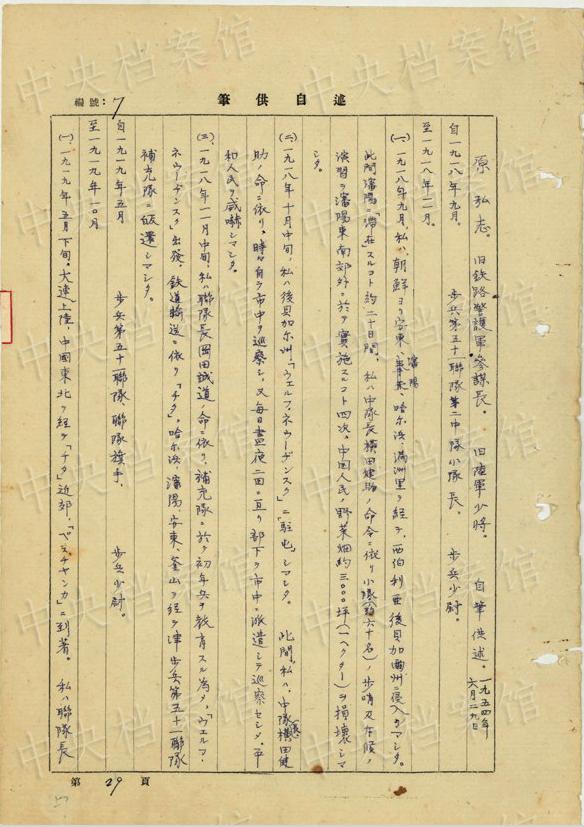 編號：7
述自供筆
原弘志。 旧鉄路警護軍參謀長。 旧陸軍少将。 自筆供述。 一九五四年六月二九日
自一九一八年九月。
至一九一八年一二月。 歩兵第五十一聯隊第二中隊小隊長。 歩兵少尉。
(一)、一九一八年九月、私ハ、朝鮮ヨリ安東、瀋陽、哈尔浜、満洲里ヲ経テ、西伯利亜後貝加爾州ニ侵入シマシタ。
此間瀋陽ニ「滞在」スルコト約二十日間、私ハ中隊長横田健助ノ命令ニ依リ小隊(約六十名)ノ歩哨及斥候ノ
演習ヲ瀋陽東南郊外ニ於テ實施スルコト四次、中国人民ノ野菜畑約三〇〇〇坪(一ヘクター)ヲ損壊シマ
シタ。
(二)、一九一八年十月中旬、私ハ後貝加尔州、「ウェルフ、ネウーヂンスク」ニ「駐屯」シマシタ。 此間、私ハ、中隊長横田健
助ノ命ニ依リ。時々自ラ市中ヲ巡察シ、又毎日晝夜二回ニ亘リ部下ヲ市中ニ派遣シテ巡察セシメ、平
和人民ヲ威嚇シマシタ。
(三)、一九一八年一二月中旬、私ハ聯隊長岡田誠道ノ命ニ依リ、補充隊ニ於テ初年兵ヲ教育スル為メ、「ウェルフ、
ネウーヂンスク」出発、鉄道輸送ニ依リ「チタ」、哈尔浜、瀋陽、安東、釜山ヲ経テ津歩兵第五十一聯隊
補充隊ニ帰還シマシタ。
自一九一九年五月
至一九一九年一〇月 歩兵第五十一聯隊聯隊旗手、 歩兵少尉。
(一)、一九一九年五月下旬、大連上陸、中國東北ヲ経テ「チタ」近郊、「ペスチャンカ」ニ到着。 私ハ聯隊長
第29頁
中央档案馆